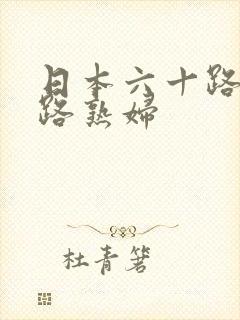 日本六十路
路熟婦
杜青箸